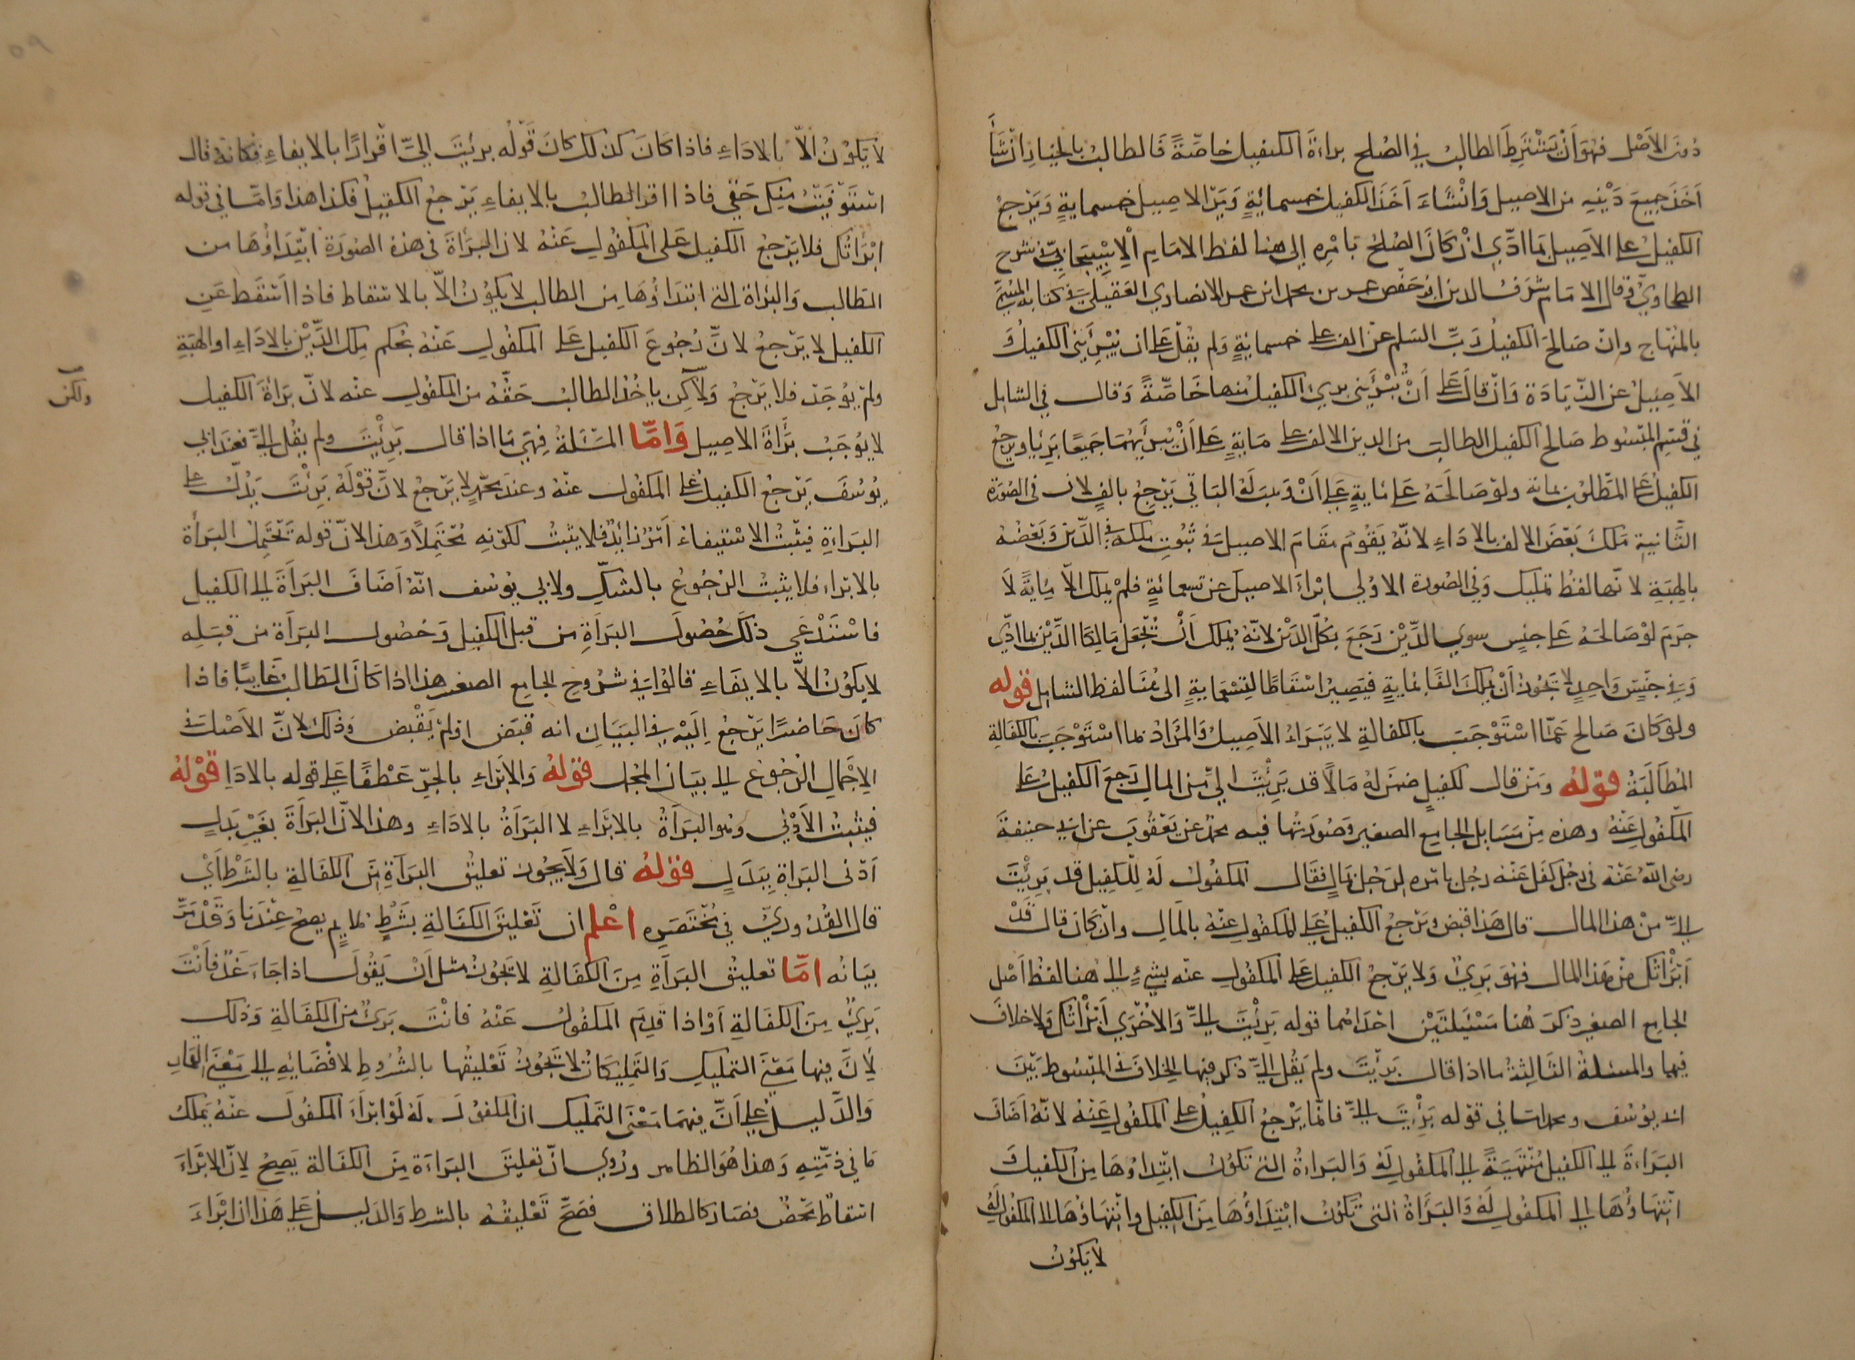 دون الاصل فهو أن يشترط الطالب في الصلح براءة الكفيل خاصّةً فالطالب بالخيار ان شاء
اخذ جميع دينه من الاصيل وان شاء اخذ الكفيل خمسمائةٍ ومن الاصيل خمسمايةٍ ويرجع
الكفيل على الاصيل بما ادّى ان كان الصلح بامره إلى هنا لفظ الامام الاسبيجابيّ في شرح
الطحاويّ وقال الامام شرف الدين ابو حفص عمر بن محمد ابن عمر الانصاري العقيلي في كتابه المسمّى
بالمنهاج وان صالح الكفيل ربّ السلم عن الف على خمسمايةٍ ولم يقل على ان تبرئني الكفيل
الاصيل عن الزيادة وان قال على أن تبرئني بريء الكفيل منها خاصّةً وقال في الشامل
في قسم المبسوط صالح الكفيل الطالب من الدين الالف على مايةٍ على أن يبرأيهما جميعًا برئا ويرجع
الكفيل على المطلوب بماية ولو صالحه على مايةٍ على ان وهب له الباقي يرجع بالفٍ لان في الصورة
الثانية ملك بعض الالف بالاداء لانه يقوم مقام الاصيل في ثبوت ملكه في الدّين وبعضه
بالهبة لانها لفظ تمليك وفي الصورة الاولى ابراء الاصيل عن تسعمائةٍ فلم يملك الّا مايةً لا
جرم لو صالحه على جنس سوى الدّين رجع بكل الدين لانه يملك أن يجعل مالكا الدّين بما ادّى
وفي جنس واحد لا يجوز أن يملك الفًا بمايةٍ فيصير اسقاطًا لتسعمايةٍ الى هنا لفظ الشامل قوله
ولو كان صالح عمّا استوجب بالكفالة لا يبراء الاصيل والمراد بما استوجب بالكفالة
المطالبة قوله ومن قال لكفيلٍ ضمن له مالًا قد برئت اليّ من المال رجع الكفيل على
المكفول عنه وهذه من مسايل الجامع الصغير وصورتها فيه محمد عن يعقوب عن ابي حنيفة
رضي الله عنه في رجل كفل عنه رجل بامره لرجل بمالٍ فقال المكفول له للكفيل قد برئت
اليّ من هذا المال قال هذا قبض ويرجع الكفيل على المكفول عنه بالمال وان كان قال قد
ابرأتك من هذا المال فهو بريٌ ولا يرجع الكفيل على المكفول عنه بشيءٍ الى هنا لفظ اصل
الجامع الصغير ذكر هنا مسئلتين احداهما قوله برئت اليّ والاخرى أبرأتك ولا خلاف
فيهما والمسئلة الثالثة ما اذا قال برئت ولم يقل اليّ ذكر فيها الخلاف في المبسوط بين
ابي يوسف ومحمد اما في قوله برئت اليّ فانّما يرجع الكفيل على المكفول عنه لانّه اضاف
البراءة الى الكفيل منتهيةً الى المكفول له والبراءة التي تكون ابتداؤها من الكفيل
انتهاؤها الى المكفول له والبراة التى تكون ابتداؤها من الكفيل وانتهاؤها الى المكفول له
لا يكون
لا يكون الّا بالاداء فاذا كان كذلك كان قوله برئت اليّ اقرارًا بالايفاء فكانه قال
استوفيت منك حقي فاذا اقر الطالب بالايفاء يرجع الكفيل فكذا هذا وامّا في قوله
ابرأتك فلا يرجع الكفيل على المكفول عنه لان البرأة في هذه الصورة ابتداؤها من
الطالب والبراة التي ابتداؤها من الطالب لا يكون الّا بالاسقاط فاذا اسقط عن
الكفيل لا يرجع لانّ رجوع الكفيل على المكفول عنه بحكم ملك الدّين بالاداء او الهبة
ولم يوجد فلا يرجع ولاكن ياخذ الطالب حقّه من المكفول عنه لانّ براة الكفيل
ولكن
لا يوجب برأة الاصيل وامّا المسئلة فهي ما اذا قال برئت ولم يقل اليّ فعند ابي
يوسف يرجع الكفيل على المكفول عنه وعند محمّدٍ لا يرجع لانّ قوله برئت يدل على
البراءة فيثبت الاستيفاء امر زايد فلا يثبت لكونه محتملًا وهذا لانّ قوله تحتمل البرأة
بالابراء فلا يثبت الرجوع بالشكّ ولابي يوسف انّه اضاف البرأة الى الكفيل
فاستدعى ذلك حصول البرأة من قبل الكفيل وحصول البرأة من قبله
لا يكون الّا بالايفاء قالوا في شروح الجامع الصغير هذا اذا كان الطالب غايبًا فاذا
كان حاضرًا يرجع اليه في البيان انه قبض او لم يقبض وذلك لانّ الاصل في
الاجمال الرجوع الى بيان المجمل قوله والابراء بالجرّ عطفًا على قوله بالادا قوله
فيثبت الادنى وهو البرأة بالابراء لا البرأة بالاداء وهذا لانّ البرأة بغير بدلٍ
ادنى البراة ببدلٍ قوله قال ولا يجوز تعليق البرآة من الكفالة بالشرط أي
قال القدوريّ في مختصره اعلم ان تعليق الكفالة بشرطٍ ملايم يصحّ عندنا وقد مرّ
بيانه امّا تعليق البرأة من الكفالة لا يجوز مثل ان يقول اذا جاء غدٌ فأنت
بريٌ من الكفالة او اذا قدم المكفول عنه فانت بريٌ من الكفالة وذلك
لانّ فيها معنى التمليك والتمليكات لا يجوز تعليقها بالشروط لافضائه الى معنى القمار
والدليل على أنّ فيها معنى التمليك ان المكفول له لو ابرأ المكفول عنه يملك
ما في ذمّته وهذا هو الظاهر وروي انّ تعليق البراءة من الكفالة يصح لان الابراء
اسقاط محض فصار كالطلاق فصحّ تعليقه بالشرط والدليل على هذا ان ابراء